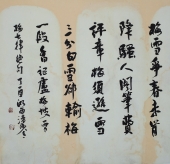 梅雪爭春未肯
降騷人閣筆費
評章梅須遜雪
三分白雪卻輸梅
一段香